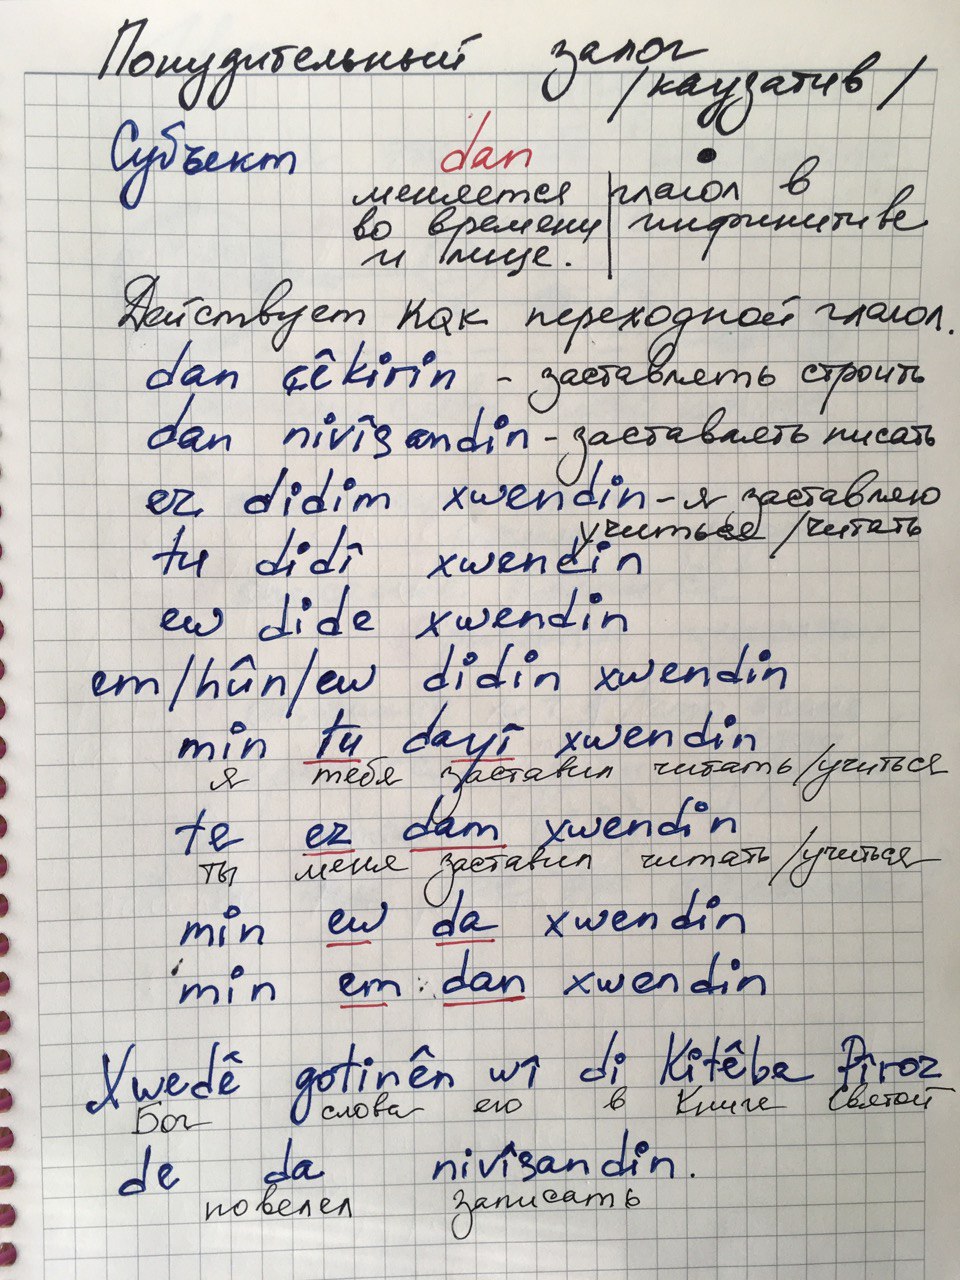 Понудительный залог
/каузатив/
Субъект dan •
меняется | глагол в
во времени | инфинитиве
и лице.
Действует как переходной глагол.
dan çêkirin - заставлять строить
dan nivîsandin - заставлять писать
ez didim xwendin - я заставляю
учиться /читать
tu didî xwendin
ew dide xwendin
em/hûn/ew didin xwendin
min tu dayî xwendin
я тебя заставил читать/учиться
te ez dam xwendin
ты меня заставил читать/учиться
min ew da xwendin
min em dan xwendin
Xwedê gotinên wî di Kitêba Pîroz
Бог слова его в Книге Святой
de da nivîsandin.
повелел записать